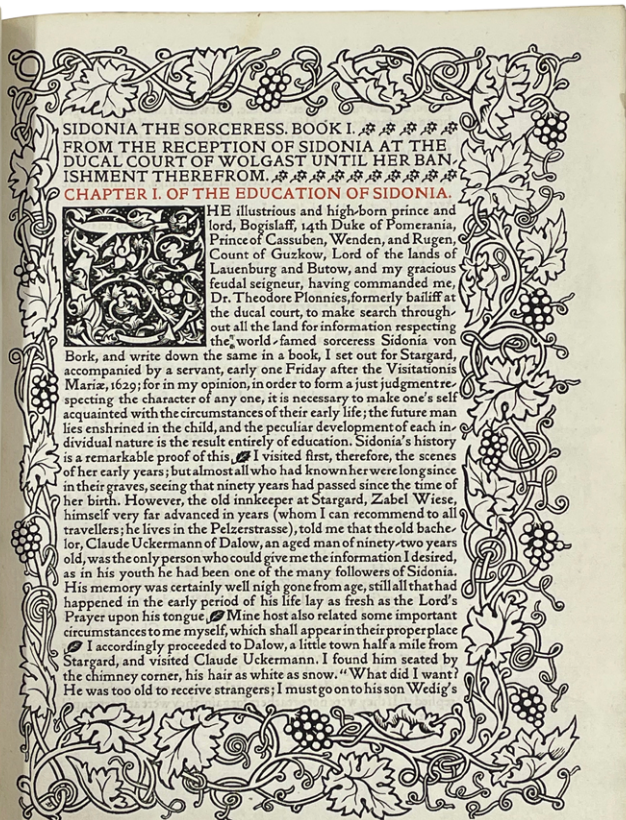 SIDONIA THE SORCERESS. BOOK I.
FROM THE RECEPTION OF SIDONIA AT THE
DUCAL COURT OF WOLGAST UNTIL HER BAN-
ISHMENT THEREFROM.
CHAPTER I. OF THE EDUCATION OF SIDONIA.
THE illustrious and high-born prince and
lord, Bogislaff, 14th Duke of Pomerania,
Prince of Cassuben, Wenden, and Rugen,
Count of Guzkow, Lord of the lands of
Lauenburg and Butow, and my gracious
feudal seigneur, having commanded me,
Dr. Theodore Plonnies, formerly bailiff at
the ducal court, to make search through-
out all the land for information respecting
the world-famed sorceress Sidonia von
Bork, and write down the same in a book, I set out for Stargard,
accompanied by a servant, early one Friday after the Visitationis
Mariæ, 1629; for in my opinion, in order to form a just judgment re-
specting the character of any one, it is necessary to make one's self
acquainted with the circumstances of their early life; the future man
lies enshrined in the child, and the peculiar development of each in-
dividual nature is the result entirely of education. Sidonia's history
is a remarkable proof of this. I visited first, therefore, the scenes
of her early years; but almost all who had known her were long since
in their graves, seeing that ninety years had passed since the time of
her birth. However, the old innkeeper at Stargard, Zabel Wiese,
himself very far advanced in years (whom I can recommend to all
travellers; he lives in the Pelzerstrasse), told me that the old bache-
lor, Claude Uckermann of Dalow, an aged man of ninety-two years
old, was the only person who could give me the information I desired,
as in his youth he had been one of the many followers of Sidonia.
His memory was certainly well nigh gone from age, still all that had
happened in the early period of his life lay as fresh as the Lord's
Prayer upon his tongue. Mine host also related some important
circumstances to me myself, which shall appear in their proper place
I accordingly proceeded to Dalow, a little town half a mile from
Stargard, and visited Claude Uckermann. I found him seated by
the chimney corner, his hair as white as snow. "What did I want?
He was too old to receive strangers; I must go on to his son Wedig's